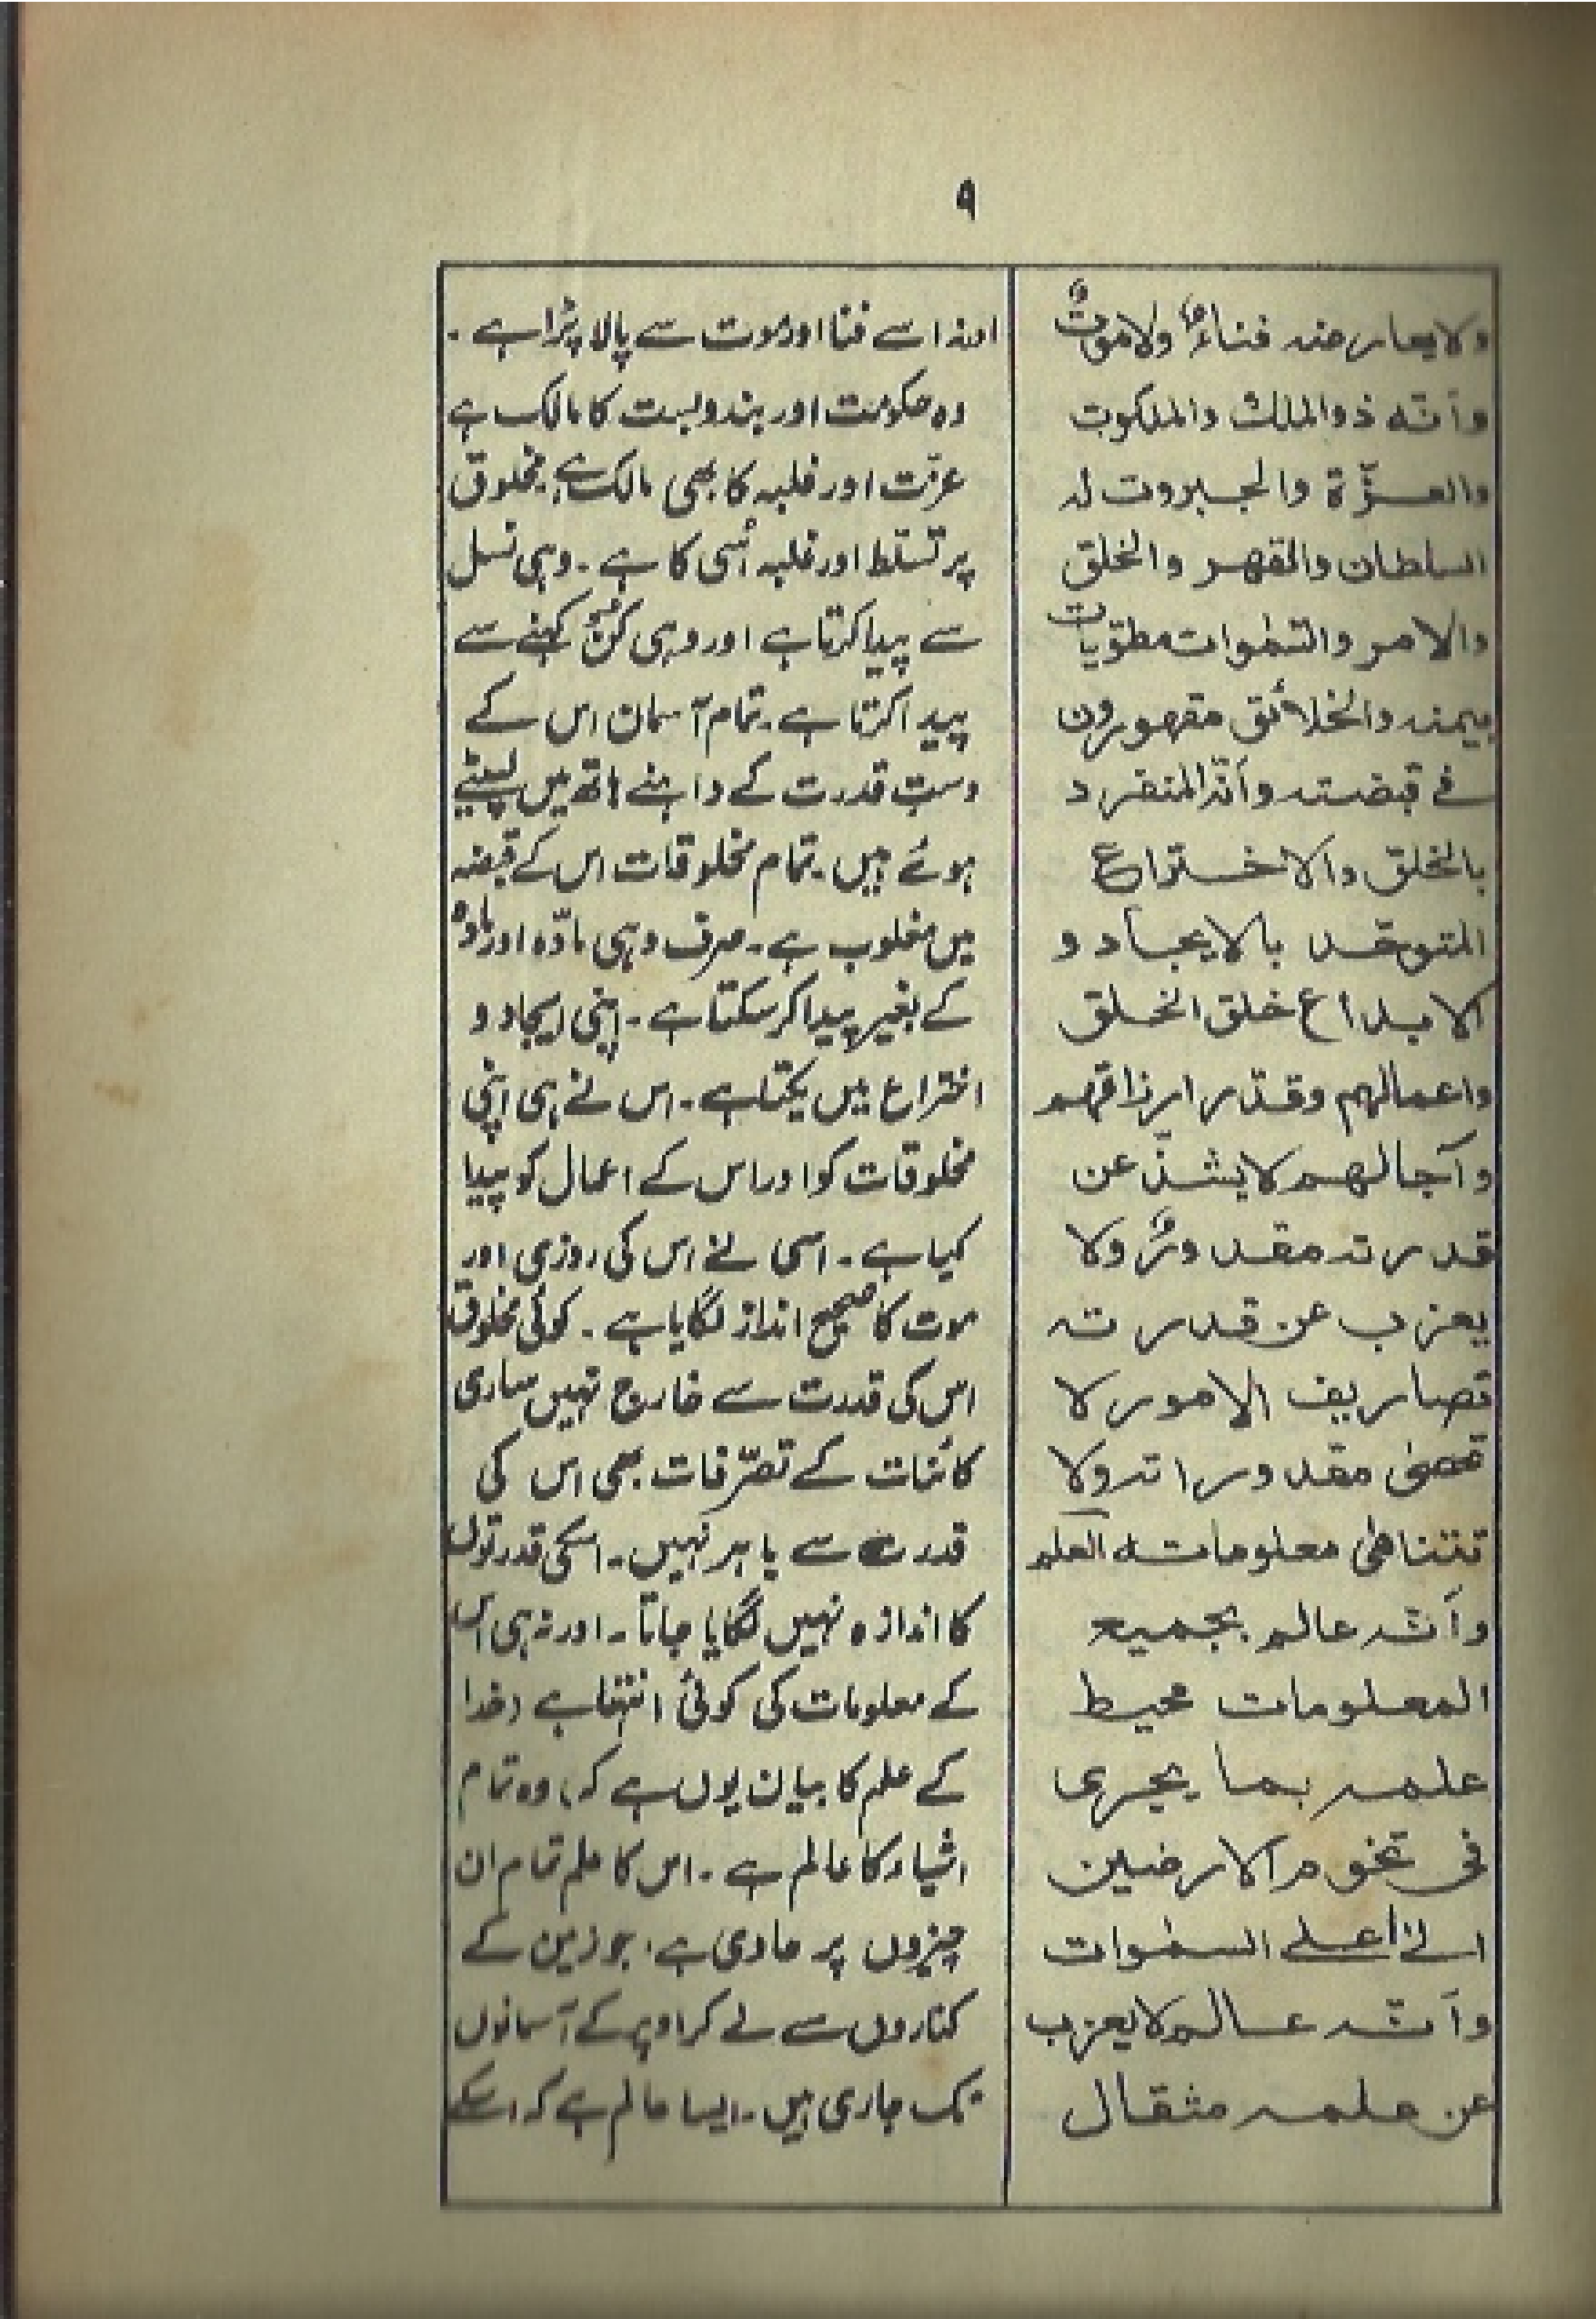 ۹
ولا يعارضه فناءٌ ولا موتٌ
وأنّه ذوالملك والملكوت
والعزّة والجبروت له
السلطان والقهر والخلق
والامر والسّمٰوات مطوّياتٌ
بيمينه والخلائق مقهورون
فے قبضته وأنّه المنفرد
بالخلق والاختراع
المتوحّد بالايجاد و
الابداع خلق الخلق
واعمالهم وقدّر ارزاقهم
وآجالهم لا يشذّ عن
قدرته مقدورٌ ولا
يعزب عن قدرته
تصاريف الامور لا
تحصیٰ مقدوراته ولا
تتناهیٰ معلوماته العلم
وأنّه عالم بجميع
المعلومات محيط
علمه بما يجری
فی تخوم الارضين
الےٰ أعلے السمٰوات
وأنّه عالم لا يعزب
عن علمه مثقال
اورنہ اسے فنا اور موت سے پالا پڑا ہے ۔
وہ حکومت اور بندوبست کا مالک ہے
عزّت اور غلبہ کا بھی مالک ہے مخلوق
پر تسلّط اور غلبہ اُسی کا ہے ۔ وہی نسل
سے پیدا کرتا ہے اور وہی کُن کہنے سے
پیدا کرتا ہے ۔ تمام آسمان اس کے
دستِ قدرت کے داہنے ہاتھ میں لپیٹے
ہوئے ہیں ۔ تمام مخلوقات اس کے قبضہ
میں مغلوب ہے ۔ صرف وہی مادّہ اور مادّہ
کے بغیر پیدا کر سکتا ہے ۔ اپنی ایجاد و
اختراع میں یکتا ہے ۔ اس نے ہی اپنی
مخلوقات کو اور اس کے اعمال کو پیدا
کیا ہے ۔ اسی نے اس کی روزی اور
موت کا صحیح انداز لگایا ہے ۔ کوئی مخلوق
اس کی قدرت سے خارج نہیں ساری
کائنات کے تصرّفات بھی اس کی
قدرت سے باہر نہیں ۔ اسکی قدرتوں
کا اندازہ نہیں لگایا جاتا ۔ اور نہ ہی اس
کے معلومات کی کوئی انتہا ہے (خدا
کے علم کا بیان یوں ہے کہ) وہ تمام
اشیاء کا عالم ہے ۔ اس کا علم تمام ان
چیزوں پر حاوی ہے، جو زمین کے
کناروں سے لے کر اوپر کے آسمانوں
تک جاری ہیں ۔ ایسا عالم ہے کہ اسکے